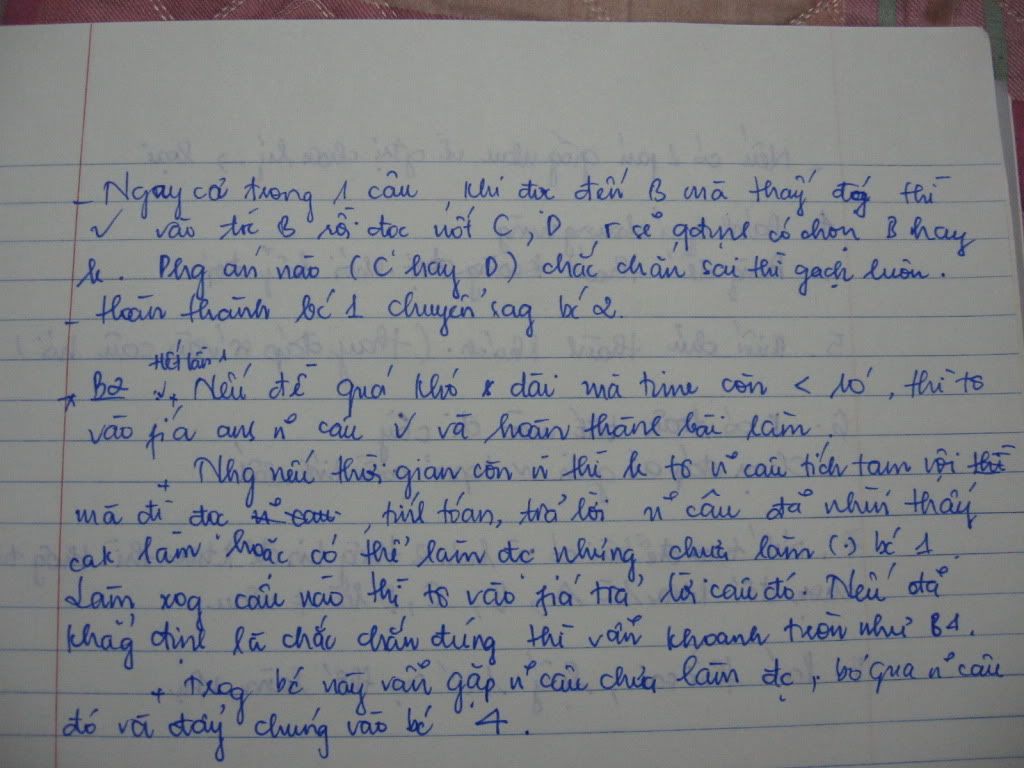 - Ngay cả trong 1 câu, khi đọc đến B mà thấy đúg thì
✓ vào trc B rồi đọc nốt C, D, r sẽ qđịnh có chọn B hay
k. Phg án nào (C hay D) chắc chắn sai thì gạch luôn.
- Hoàn thành bc 1 chuyển sag bc 2.
Hết lần 1
* B2 + Nếu đề quá khó x dài mà time còn < 10', thì tô
vào fiá ans n~ câu ✓ và hoàn thành bài làm.
+ Nhg nếu thời gian còn n` thì k tô n~ câu tích tạm vội thì
mà đi đọc n~ câu, tính toán, trả lời n~ câu đã nhìn thấy
cak làm hoặc có thể làm đc nhưng chưa làm (.) bc 1.
Làm xog câu nào thì tô vào fiá trả lời câu đó. Nếu đã
khẳg định là chắc chắn đúng thì vẫn khoanh tròn như B1.
+ Trog bc này vẫn gặp n~ câu chưa làm đc, bỏ qua n~ câu
đó và đẩy chúng vào bc 4.